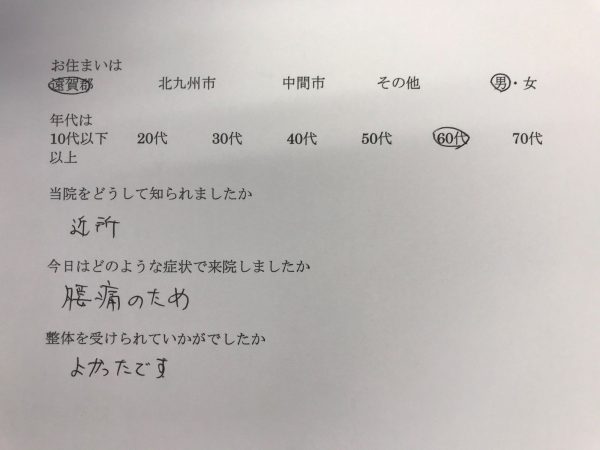 お住まいは
遠賀郡 北九州市 中間市 その他 男・女
年代は
10代以下 20代 30代 40代 50代 60代 70代
以上
当院をどうして知られましたか
近所
今日はどのような症状で来院しましたか
腰痛のため
整体を受けられていかがでしたか
よかったです